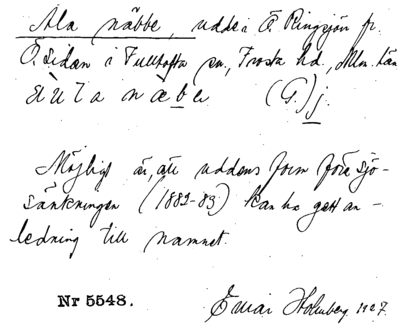 Ala näbbe, udde i Ö. Ringsjön fr.
Ö. sidan i Fulltofta sn., Frosta hd., Mlm. län
næbe (G.) j.
Möjligt är, att uddens form före sjö-
sänkningen (1882-83) kan ha gett an-
ledning till namnet.
Nr 5548.
Einar Holmberg 1927.